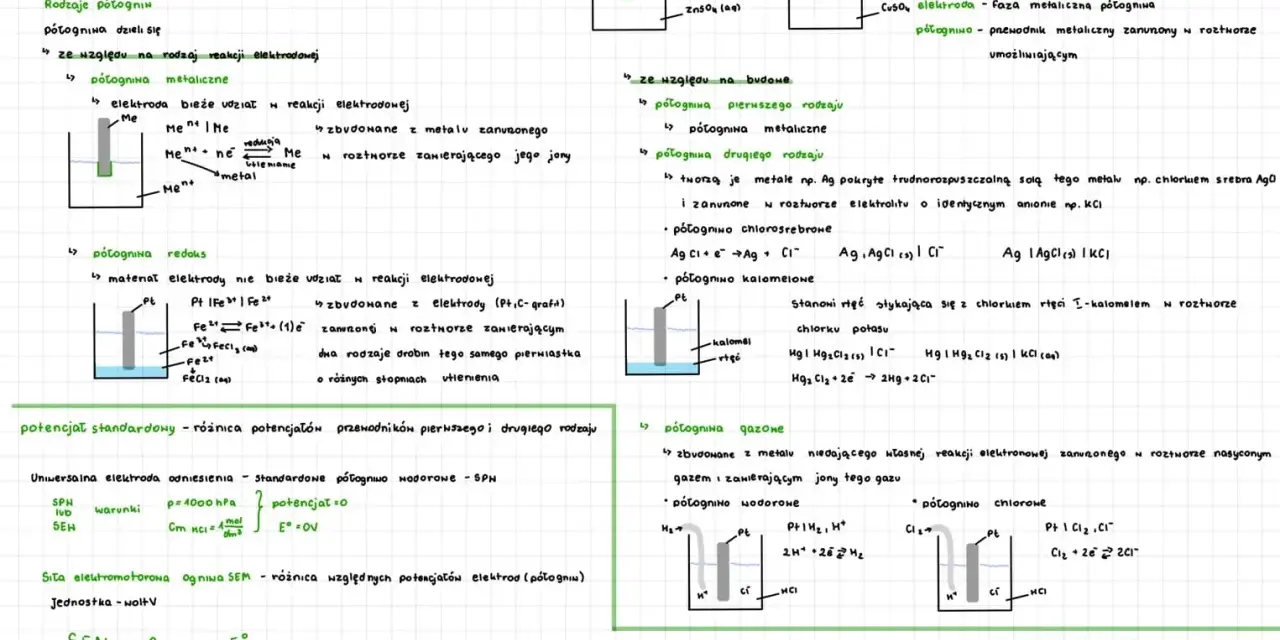 Rodzaje półogniw
półogniwa dzieli się
↳ ze względu na rodzaj reakcji elektrodowej
↳ półogniwa metaliczne
↳ elektroda bieże udział w reakcji elektrodowej
Me
Meⁿ⁺ | Me
Meⁿ⁺ + ne⁻ ⇄ Me
redukcja
utlenianie
metal
Meⁿ⁺
↳ zbudowane z metalu zanurzonego
w roztworze zawierającego jego jony
↳ półogniwa redoks
↳ materiał elektrody nie bieże udział w reakcji elektrodowej
Pt
Pt | Fe³⁺ | Fe²⁺
Fe²⁺ ⇄ Fe³⁺ + (1)e⁻
Fe³⁺ ↳ FeCl₃ (aq)
Fe²⁺
↓
FeCl₂ (aq)
↳ zbudowane z elektrody (Pt, C-grafit)
zanurzonej w roztworze zawierającym
dwa rodzaje drobin tego samego pierwiastka
o różnych stopniach utlenienia
potencjał standardowy - różnica potencjałów przewodników pierwszego i drugiego rodzaju
Uniwersalna elektroda odniesienia - standardowe półogniwo wodorowe - SPW
SPW
lub
SEW
warunki
p = 1000 hPa
Cm HCl = 1 mol/dm³
potencjał = 0
E° = 0V
Siła elektromotorowa ogniwa SEM - różnica względnych potencjałów elektrod (półogniw)
Jednostka - wolt V
ZnSO₄ (aq)
CuSO₄
elektroda - faza metaliczna półogniwa
półogniwo - przewodnik metaliczny zanurzony w roztworze
umożliwiającym
↳ ze względu na budowe
↳ półogniwa pierwszego rodzaju
↳ półogniwa metaliczne
↳ półogniwa drugiego rodzaju
↳ tworzą je metale np. Ag pokryte trudnorozpuszczalną solą tego metalu np. chlorkiem srebra AgCl
i zanurzone w roztworze elektrolitu o identycznym anionie np. KCl
• półogniwo chlorosrebrowe
AgCl + e⁻ → Ag + Cl⁻
Ag, AgCl (s) | Cl⁻
Ag | AgCl (s) | KCl
• półogniwo kalomelowe
Pt
kalomel
rtęć
Stanowi rtęć stykająca się z chlorkiem rtęci I - kalomelem w roztworze
chlorku potasu
Hg | Hg₂Cl₂ (s) | Cl⁻
Hg | Hg₂Cl₂ (s) | KCl (aq)
Hg₂Cl₂ + 2e⁻ → 2Hg + 2Cl⁻
↳ półogniwa gazowe
↳ zbudowane z metalu niedającego własnej reakcji elektronowej zanurzonego w roztworze nasyconym
gazem i zawierającym jony tego gazu
• półogniwo wodorowe
H₂ →
Pt
Pt | H₂, H⁺
2H⁺ + 2e⁻ ⇄ H₂
H⁺
Cl⁻
HCl
• półogniwo chlorowe
Cl₂ →
Pt
Pt | Cl₂, Cl⁻
Cl₂ + 2e⁻ ⇄ 2Cl⁻
H⁺
Cl⁻
HCl